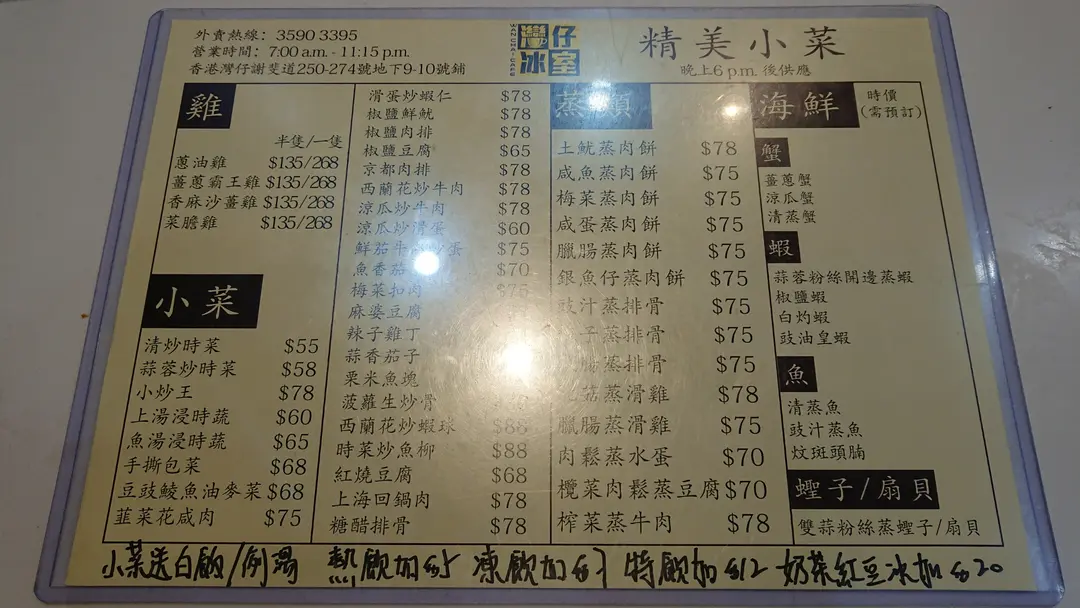 外賣熱線：3590 3395
營業時間：7:00 a.m. - 11:15 p.m.
香港灣仔謝斐道250-274號地下9-10號鋪
灣仔
冰室
WANCHAI CAFE
精美小菜
晚上6 p.m. 後供應
雞
半隻/一隻
蔥油雞 $135/268
薑蔥霸王雞 $135/268
香麻沙薑雞 $135/268
菜膽雞 $135/268
小菜
清炒時菜 $55
蒜蓉炒時菜 $58
小炒王 $78
上湯浸時蔬 $60
魚湯浸時蔬 $65
手撕包菜 $68
豆豉鯪魚油麥菜 $68
韮菜花咸肉 $75
滑蛋炒蝦仁 $78
椒鹽鮮魷 $78
椒鹽肉排 $78
椒鹽豆腐 $65
京都肉排 $78
西蘭花炒牛肉 $78
涼瓜炒牛肉 $78
涼瓜炒滑蛋 $60
鮮茄牛 炒蛋 $75
魚香茄 $70
梅菜扣肉 $75
麻婆豆腐
辣子雞丁
蒜香茄子
粟米魚塊
菠蘿生炒骨
西蘭花炒蝦球 $88
時菜炒魚柳 $88
紅燒豆腐 $68
上海回鍋肉 $78
糖醋排骨 $78
蒸類
土魷蒸肉餅 $78
咸魚蒸肉餅 $75
梅菜蒸肉餅 $75
咸蛋蒸肉餅 $75
臘腸蒸肉餅 $75
銀魚仔蒸肉餅 $75
豉汁蒸排骨 $75
子蒸排骨 $75
腸蒸排骨 $75
菇蒸滑雞 $78
臘腸蒸滑雞 $75
肉鬆蒸水蛋 $70
欖菜肉鬆蒸豆腐 $70
榨菜蒸牛肉 $78
海鮮 時價
(需預訂)
蟹
薑蔥蟹
涼瓜蟹
清蒸蟹
蝦
蒜蓉粉絲開邊蒸蝦
椒鹽蝦
白灼蝦
豉油皇蝦
魚
清蒸魚
豉汁蒸魚
炆斑頭腩
蟶子/扇貝
雙蒜粉絲蒸蟶子/扇貝
小菜送白飯/例湯 熱飲加$5 凍飲加$7 特飲加$12 奶茶紅豆冰加$20